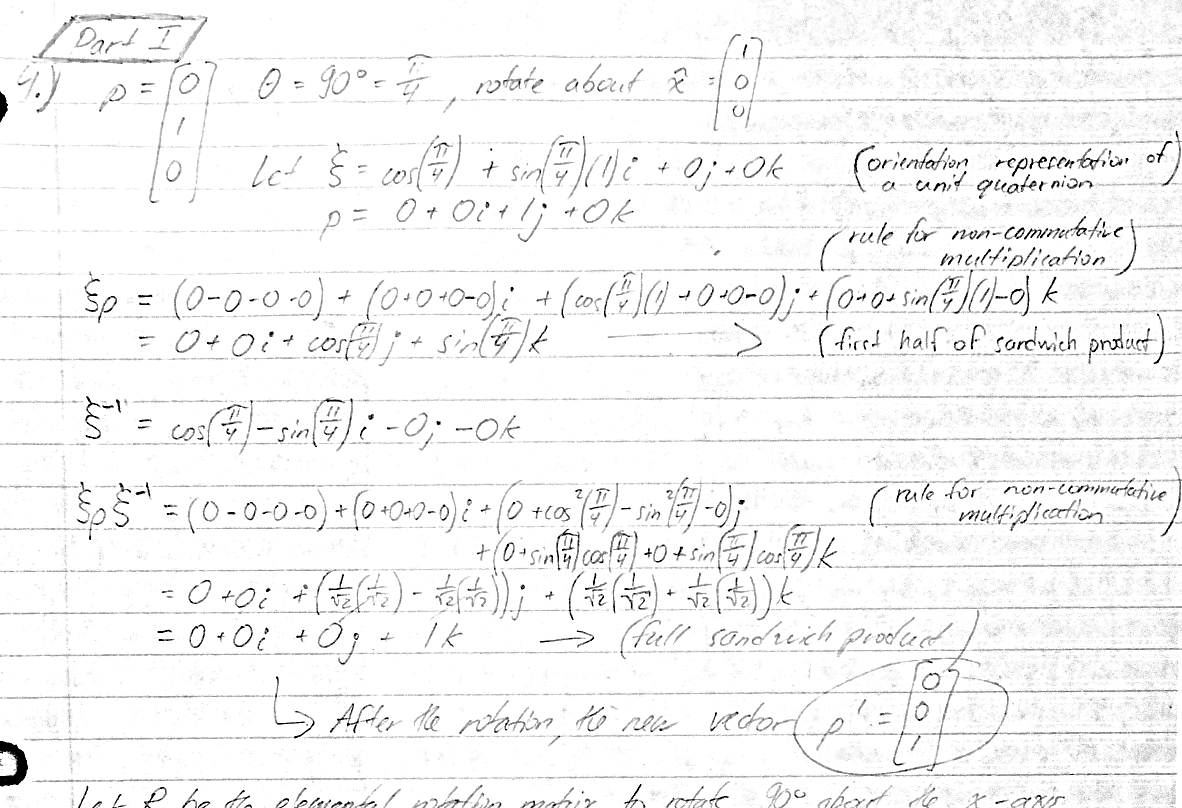 Part I
4.) p = [0 1 0] θ = 90° = π/4, rotate about x̂ = [1 0 0]
Let ξ = cos(π/4) + sin(π/4)(1)i + 0j + 0k (orientation representation of a unit quaternion)
p = 0 + 0i + 1j + 0k
(rule for non-commutative multiplication)
ξp = (0-0-0-0) + (0+0+0-0)i + (cos(π/4)(1)+0+0-0)j + (0+0+sin(π/4)(1)-0)k
= 0 + 0i + cos(π/4)j + sin(π/4)k → (first half of sandwich product)
ξ⁻¹ = cos(π/4) - sin(π/4)i - 0j - 0k
ξpξ⁻¹ = (0-0-0-0) + (0+0+0-0)i + (0 + cos²(π/4) - sin²(π/4) - 0)j (rule for non-commutative multiplication)
+ (0 + sin(π/4)cos(π/4) + 0 + sin(π/4)cos(π/4))k
= 0 + 0i + (1/√2(1/√2) - 1/√2(1/√2))j + (1/√2(1/√2) + 1/√2(1/√2))k
= 0 + 0i + 0j + 1k → (full sandwich product)
↳ After the rotation, the new vector p' = [0 0 1]
Let R be the elemental rotation matrix to rotate 90° about the x-axis